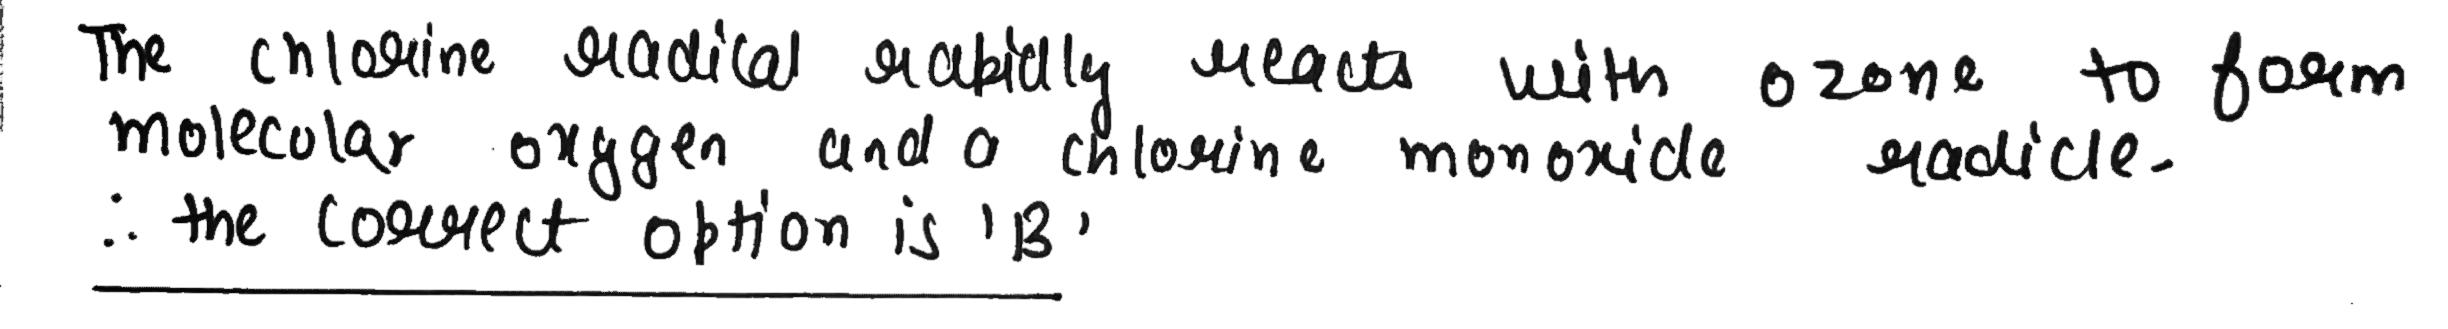 The chlorine radical rapidly reacts with ozone to form
molecular oxygen and a chlorine monoxide radicle.
∴ the correct option is 'B'